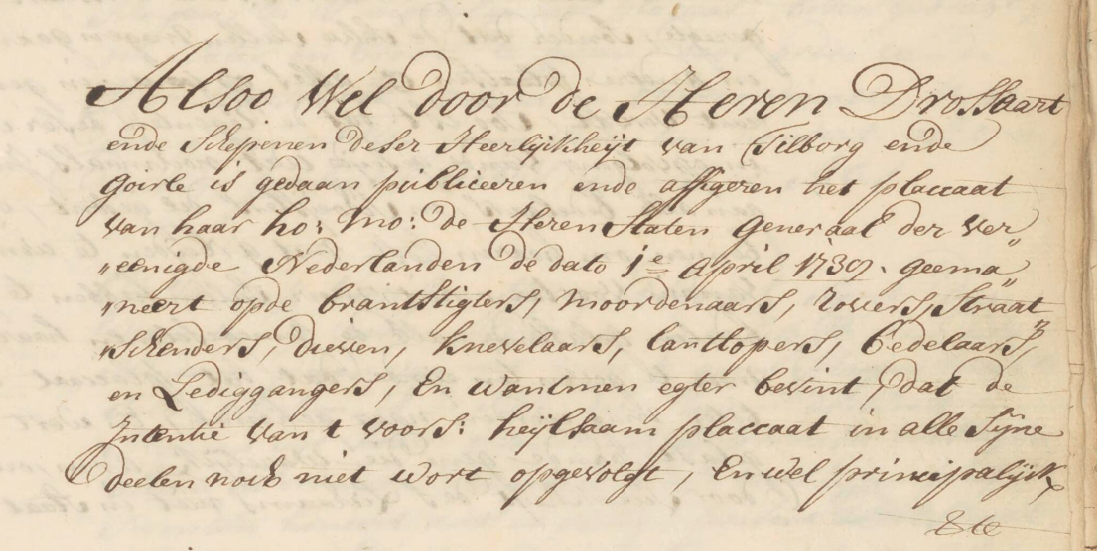 Alsoo Wel door de Heren Drossaart
ende Schepenen deser Heerlijkheijt van Tilborg ende
Goirle is gedaan publiceeren ende affigeren het placcaat
van haar ho: mo: de Heren Staten Generaal der ver„
„eenigde Nederlanden de dato 1e April 1739. geema„
„neert opde brantstigters, moordenaars, rovers, straat„
„schenders, dieven, knevelaars, lantlopers, bedelaars,
en Lediggangers, En wantmen egter bevint, dat de
Intentie van t voors: heijlsaam placcaat in alle sijne
deelen noch niet wort opgevolgt, En wel principalijk